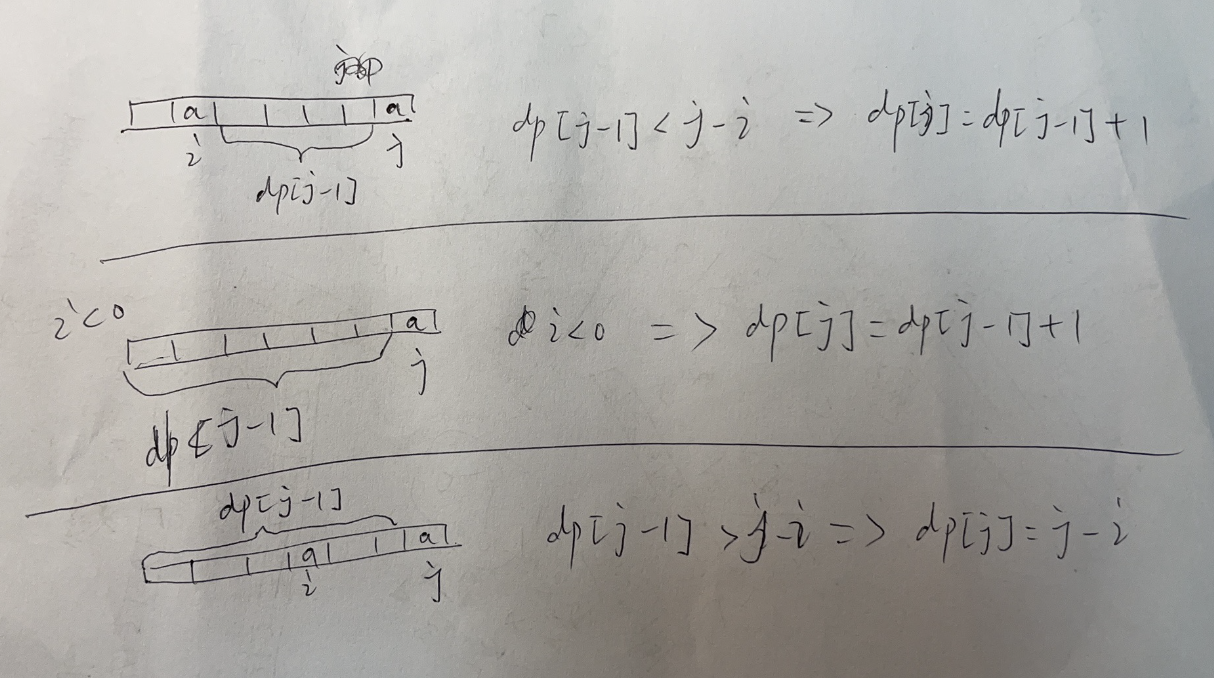 a a
i j
dp[j-1]
dp[j-1] < j-i => dp[j] = dp[j-1]+1
i<0
a
j
dp[j-1]
i<0 => dp[j] = dp[j-1]+1
dp[j-1]
a a
i j
dp[j-1] > j-i => dp[j] = j-i